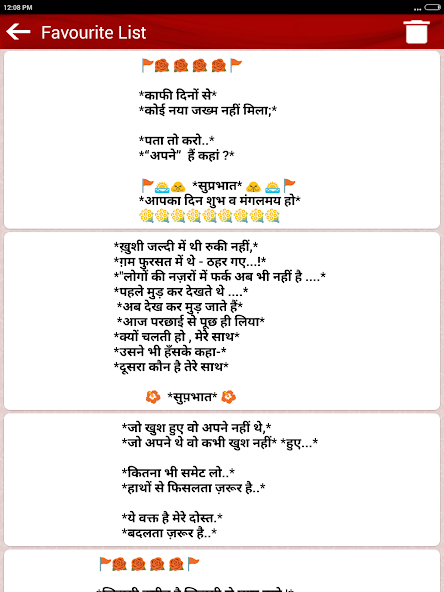 12:08 PM
Favourite List
🚩🌹🌹🌹🌹🚩
*काफी दिनों से*
*कोई नया जख्म नहीं मिला;*
*पता तो करो..*
*“अपने” हैं कहां ?*
🚩🌅🙏 *सुप्रभात* 🙏🌅🚩
*आपका दिन शुभ व मंगलमय हो*
🌼🌼🌼🌼🌼🌼🌼🌼🌼
*ख़ुशी जल्दी में थी रुकी नहीं,*
*ग़म फुरसत में थे - ठहर गए...!*
*"लोगों की नज़रों में फर्क अब भी नहीं है ....*
*पहले मुड़ कर देखते थे ....*
*अब देख कर मुड़ जाते हैं*
*आज परछाई से पूछ ही लिया*
*क्यों चलती हो , मेरे साथ*
*उसने भी हँसके कहा-*
*दूसरा कौन है तेरे साथ*
🌺 *सुप्रभात* 🌺
*जो खुश हुए वो अपने नहीं थे,*
*जो अपने थे वो कभी खुश नहीं* *हुए...*
*कितना भी समेट लो..*
*हाथों से फिसलता ज़रूर है..*
*ये वक्त है मेरे दोस्त.*
*बदलता ज़रूर है..*
🚩🌹🌹🌹🌹🚩